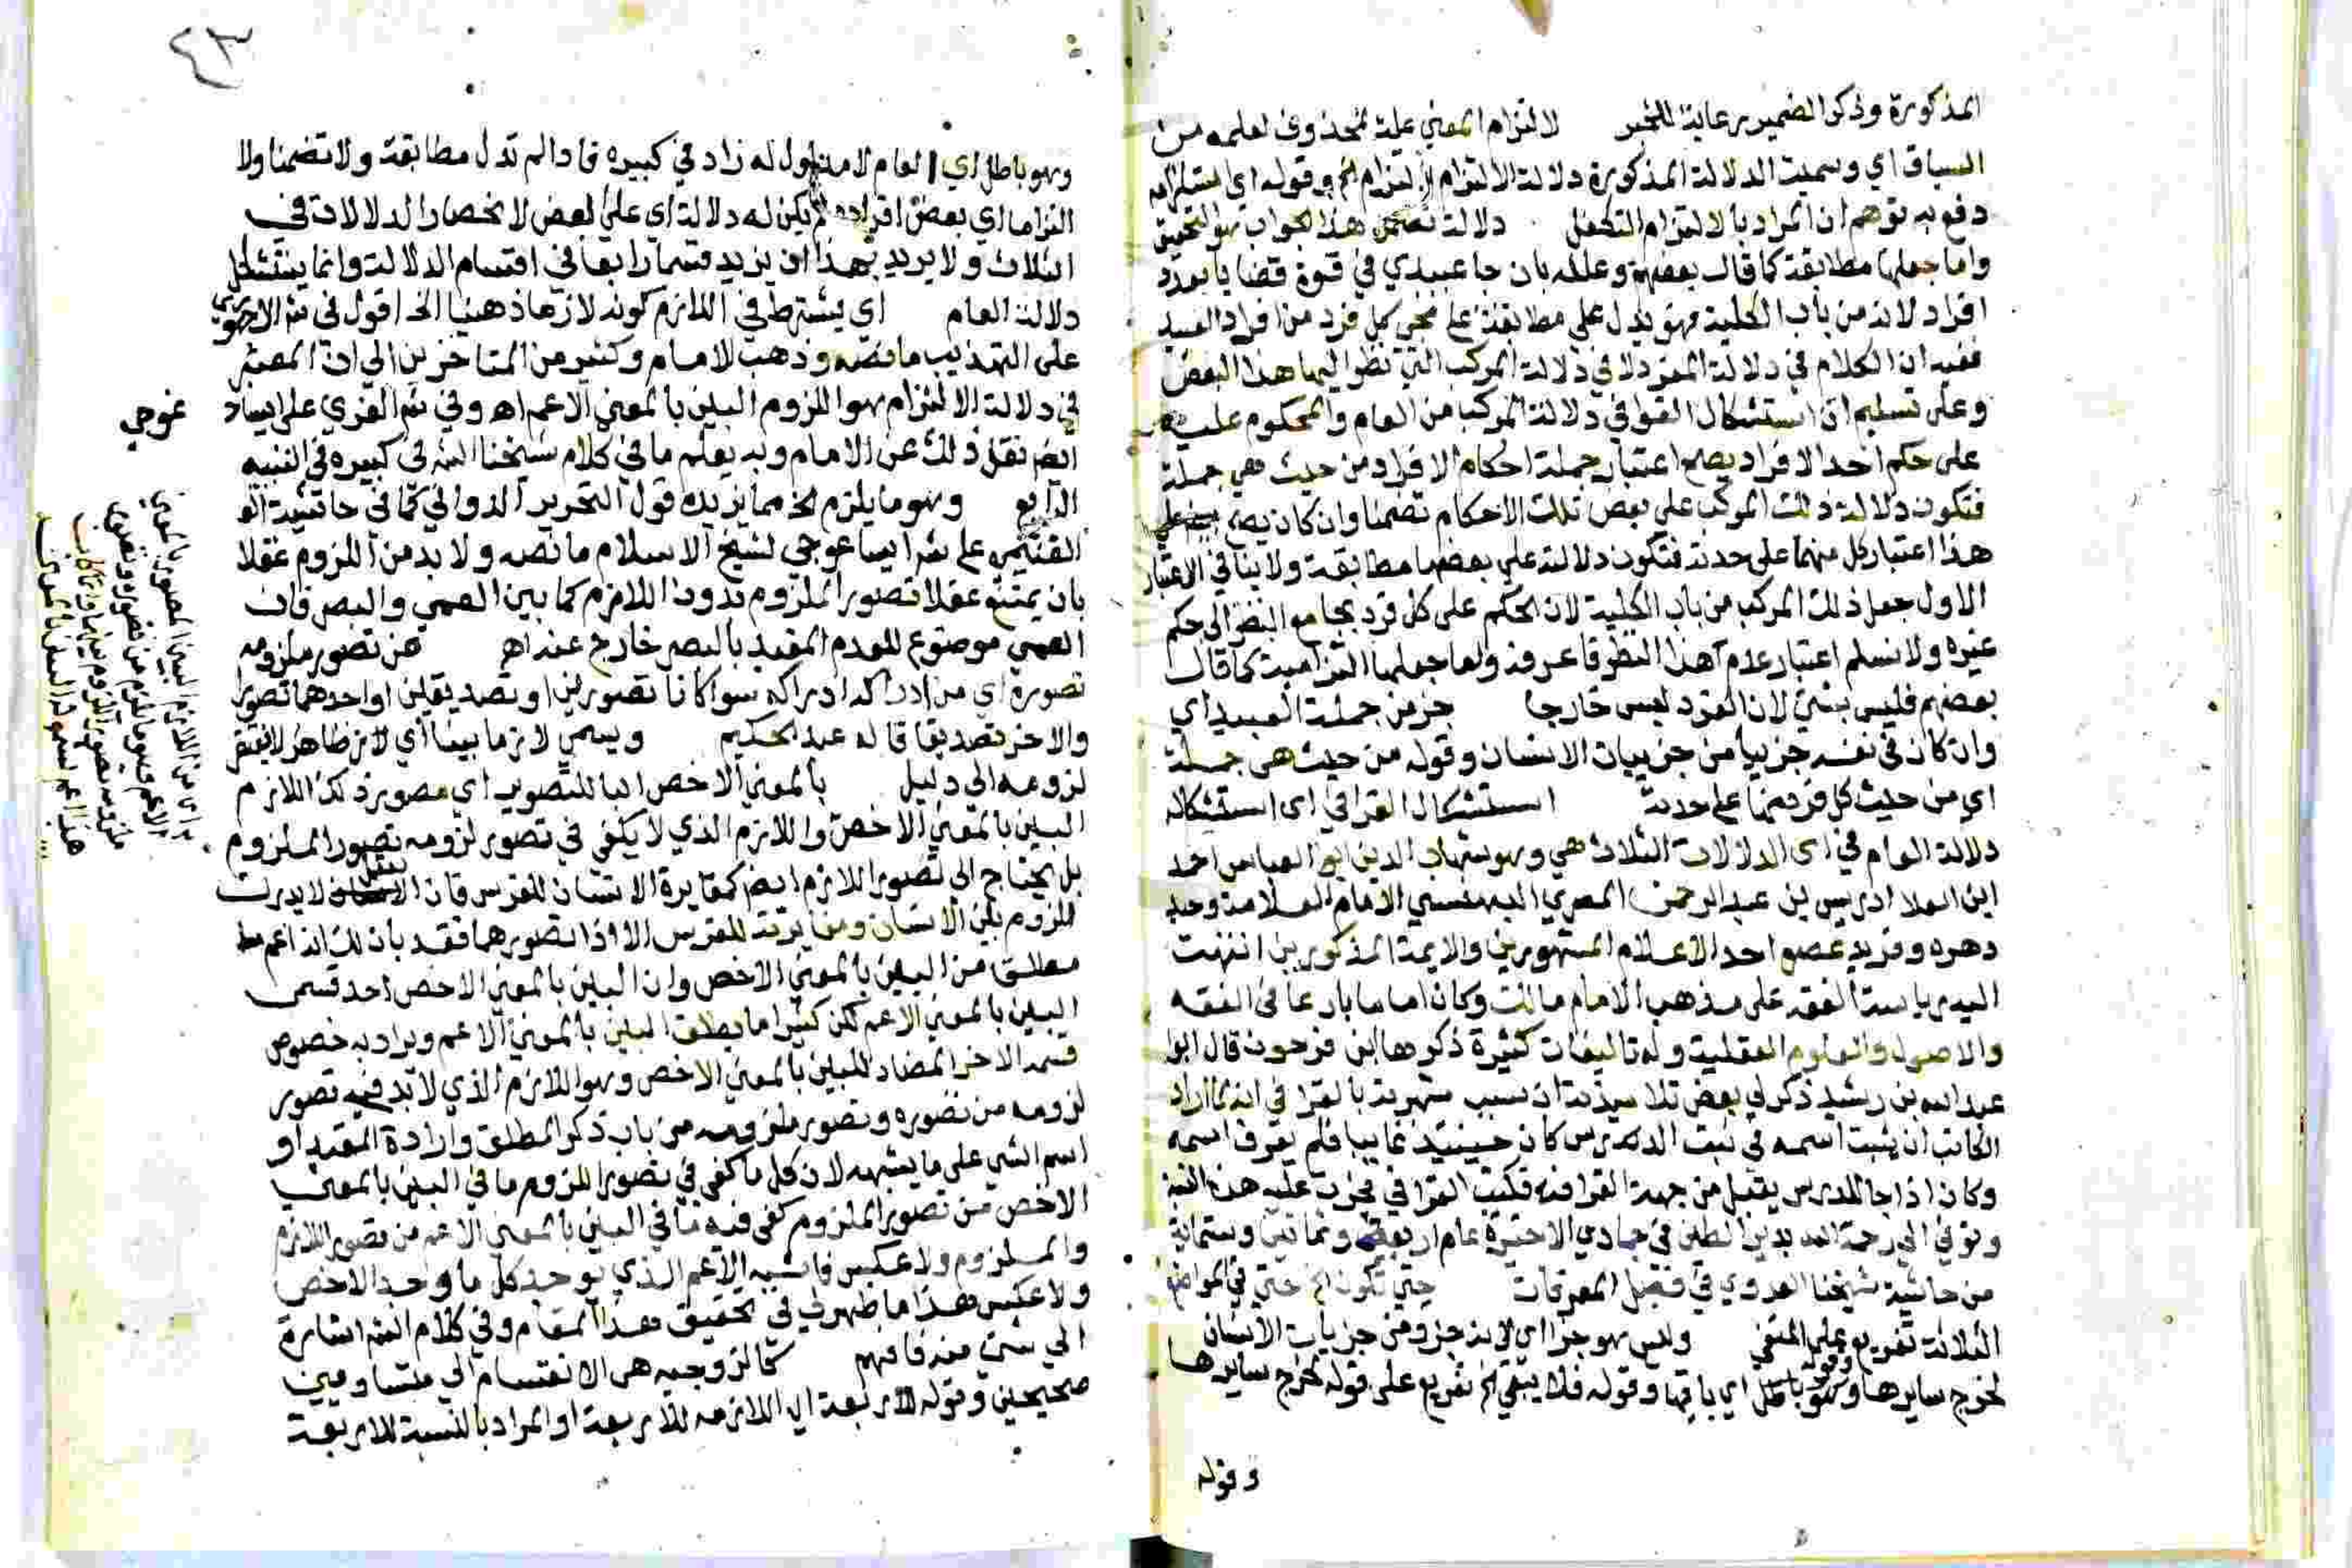 المذكورة وذكر الضمير رعاية للخبر لالتزام المعني علة لمحذوف لعلمه من
السياق اي وسميت الدلالة المذكورة دلالة الالتزام لالتزام الخ وقوله اي استلزامه
دفع به توهم ان المراد بالالتزام التكفل دلالة تضمن هذا الجواب هو التحقيق
واما جعلها مطابقة كما قال بعضهم وعلله بان جا عبيدي في قوة قضايا بعدد
افراد لانه من باب الكلية فهو يدل علي مطابقة علي مجي كل فرد من افراد العبيد
ففيه ان الكلام في دلالة المفرد لا في دلالة المركب التي نظر اليها هذا البعض
وعلي تسليم ان استشكال القرافي دلالة المركب من العام والمحكوم عليه
علي حكم احد الافراد يصح اعتبار جملة احكام الافراد من حيث هي جملة
فتكون دلالة ذلك المركب علي بعض تلك الاحكام تضمنا وان كان يصح
هذا اعتبار كل منهما علي حدته فتكون دلالته علي بعضها مطابقة ولا ينافي الاعتبار
الاول جعل ذلك المركب من باب الكلية لان الحكم علي كل فرد يجامع النظر الي حكم
غيره ولا نسلم اعتبار عدم هذا النظر فاعرفه واما جعلها التزامية كما قال
بعضهم فليس بشئ لان الفرد ليس خارجا جزء من جملة العبيد اي
وان كان في نفسه جزئيا من جزييات الانسان وقوله من حيث هي جملة
اي من حيث كل فرد منها علي حدته استشكال القرافي اي استشكاله
دلالة العام في اي الدلالات الثلاث هي وهو شهاب الدين ابو العباس احمد
ابن العلا ادريس بن عبد الرحمن المصري البهنسي الامام العلامة وحيد
دهره وفريد عصره احد الاعلام المشهورين والايمة المذكورين انتهت
اليه رياسة الفقه علي مذهب الامام مالك وكان اماما بارعا في الفقه
والاصول والعلوم العقلية وله تاليفات كثيرة ذكرها ابن فرحون قال ابو
عبد الله بن رشيد ذكر لي بعض تلامذته ان سبب شهرته بالقرافي انه لما اراد
الكاتب ان يثبت اسمه في ثبت الدرس كان حينئذ غايبا فلم يعرف اسمه
وكان اذا جا للدرس يقبل من جهة القرافة فكتب القرافي فجرت عليه هذه النسبة
وتوفي الي رحمة الله بدير الطين في جمادي الاخيرة عام اربعة وثمانين وستماية
من حاشية شيخنا العدوي في فصل المعرفات حتي تكون الخ حتي في المواضع
الثلاثة تفريع علي المنفي وليس هو جزءا اي لانه جزء من جزيات الانسان
لخرج سايرها وهو باطل اي باقيها وقوله فلا يبقي الخ تفريع علي قوله لخرج سايرها
وقوله
٤٣
وهو باطل اي العام لا مدلول له زاد في كبيره فاذا لم تدل مطابقة ولا تضمنا ولا
التزاما اي بعض افراده لم يكن له دلالة اي علي بعض لانحصار الدلالات في
الثلاث ولا يريد بهذا ان يزيد قسما رابعا في اقسام الدلالة وانما يستشكل
دلالة العام اي يشترط في اللازم كونه لازما ذهنيا الخ اقول في
علي التهذيب ما نصه وذهب الامام وكثير من المتاخرين الي ان المعتبر
في دلالة الالتزام هو اللزوم البين بالمعني الاعم اه وفي شرح الغزي علي ايسا
غوجي
ايضا نقل ذلك عن الامام وبه يعلم ما في كلام شيخنا الش في كبيره في التنبيه
الرابع وهو ما يلزم الخ مما يزيده قول التحرير الدواني كما في حاشية
علي شرح ايساغوجي لشيخ الاسلام ما نصه ولا بد من اللزوم عقلا
بان يمتنع عقلا تصور الملزوم بدون اللازم كما بين العمي والبصر فان
العمي موضوع للعدم المقيد بالبصر خارج عنه اه من تصور ملزومه
تصوره اي من ادراكه ادراكه سوا كانا تصورين او تصديقين او احدهما تصورا
والاخر تصديقا قاله عبد الحكيم ويسمي لازما بينا اي لازم ظاهر لا يفتقر
لزومه الي دليل بالمعني الاخص البا للتصوير اي مصور ذلك اللازم
البين بالمعني الاخص واللازم الذي لا يكفي في تصور لزومه تصور الملزوم
بل يحتاج الي تصور اللازم ايضا كمغايرة الانسان للفرس فان العقل لا يدرك
اللزوم بين الانسان ومغايرته للفرس الا اذا تصورهما فقد بان لك انه اعم
مطلق من البين بالمعني الاخص وان البين بالمعني الاخص احد قسمي
البين بالمعني الاعم لكن كثيرا ما يطلق البين بالمعني الاعم ويراد به خصوص
قسمه الاخر المضاد للبين بالمعني الاخص وهو اللازم الذي لا بد فيه تصور
لزومه من تصوره وتصور ملزومه من باب ذكر المطلق وارادة المقيد او
اسم الشي علي ما يشبهه لان كل ما كفي في تصور اللزوم ما في البين بالمعني
الاخص من تصور الملزوم كفي فيه ما في البين بالمعني الاعم من تصور اللازم
والملزوم ولا عكس فاشبه الاعم الذي يوجد كل ما وجد الاخص
ولا عكس هذا ما ظهر لي في تحقيق هذا المقام وفي كلام الش اشارة
الي شئ منه فافهم كالزوجية هي الانقسام الي متساويين
صحيحين وقوله للاربعة اي اللازمة للاربعة او المراد بالنسبة للاربعة